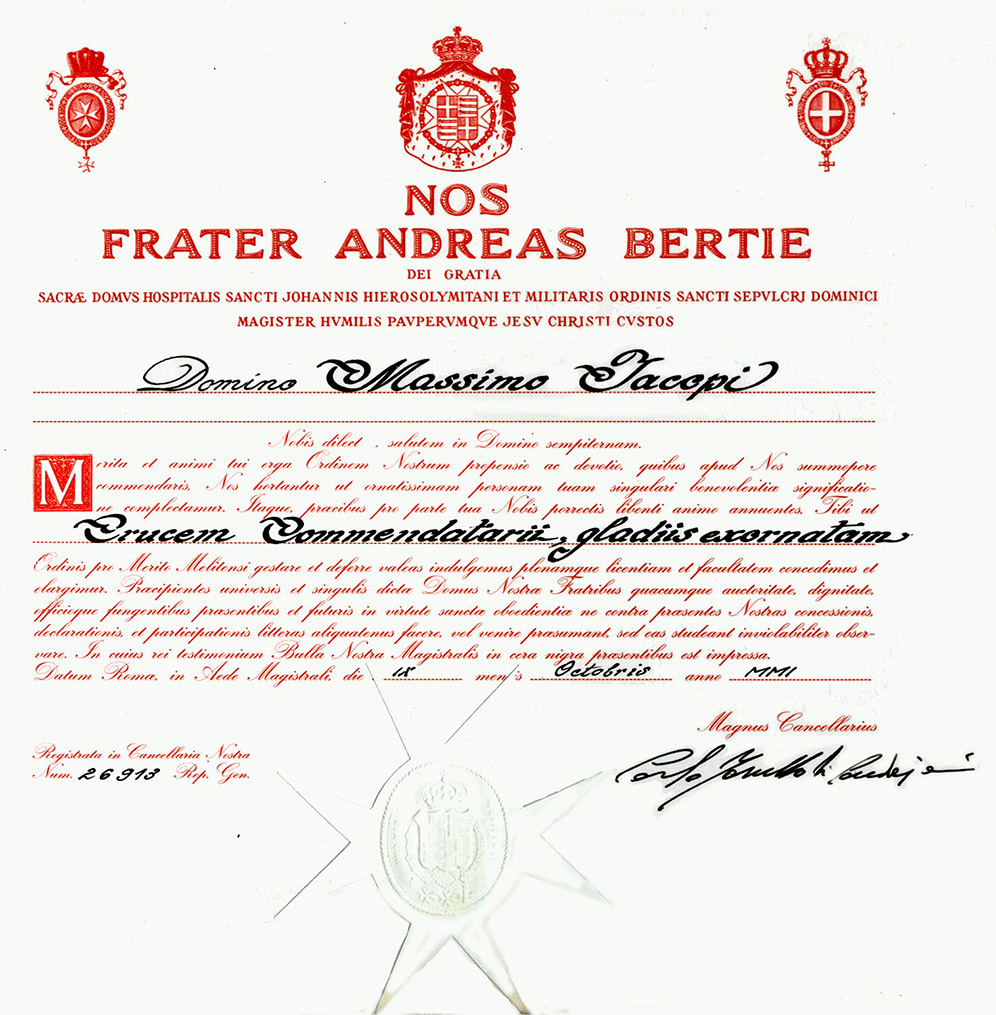 NOS
FRATER ANDREAS BERTIE
DEI GRATIA
SACRÆ DOMVS HOSPITALIS SANCTI JOHANNIS HIEROSOLYMITANI ET MILITARIS ORDINIS SANCTI SEPVLCRI DOMINICI
MAGISTER HVMILIS PAVPERVMQVE JESV CHRISTI CVSTOS
Domino Massimo Jacopi
Nobis dilect . salutem in Domino sempiternam.
Merita et animi tui erga Ordinem Nostrum propensio ac devotio, quibus apud Nos summopere
commendaris, Nos hortantur ut ornatissimam personam tuam singulari benevolentiæ significatio-
ne complectamur. Itaque, præcibus pro parte tua Nobis porrectis libenti animo annuentes, Tibi ut
Crucem Commendatarii, gladiis exornatam
Ordinis pro Merito Melitensi gestare et deferre valeas indulgemus plenamque licentiam et facultatem concedimus et
elargimur. Præcipientes universis et singulis dicta Domus Nostræ Fratribus quacumque auctoritate, dignitate,
officioque fungentibus præsentibus et futuris in virtute sanctæ obedientiæ ne contra præsentes Nostras concessionis,
declarationis, et participationis litteras aliquatenus facere, vel venire præsumant, sed eas studeant inviolabiliter obser-
vare. In cuius rei testimonium Bulla Nostra Magistralis in cera nigra præsentibus est impressa.
Datum Romæ, in Aede Magistrali, die IX mensis Octobris anno MMI
Magnus Cancellarius
Registrata in Cancellaria Nostra
Num. 26913 Rep. Gen.